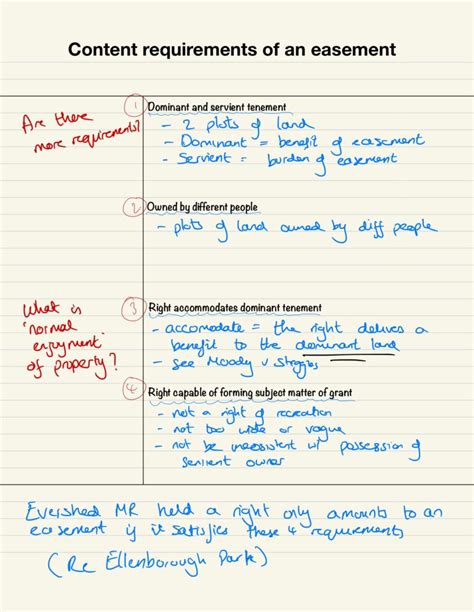 Content requirements of an easement
Are there
more requirements?
1 Dominant and servient tenement
- 2 plots of land
- Dominant = benefit of easement
- Servient = burden of easement
2 Owned by different people
- plots of land owned by diff people
What is
'normal
enjoyment
of property?
3 Right accommodates dominant tenement
- accomodate = the right delivers a
benefit to the dominant land
- see Moody v Steggles
4 Right capable of forming subject matter of grant
- not a right of recreation
- not too wide or vague
- not be inconsistent w/ possession of
servient owner
Evershed MR held a right only amounts to an
easement if it satisfies these 4 requirements
(Re Ellenborough Park)